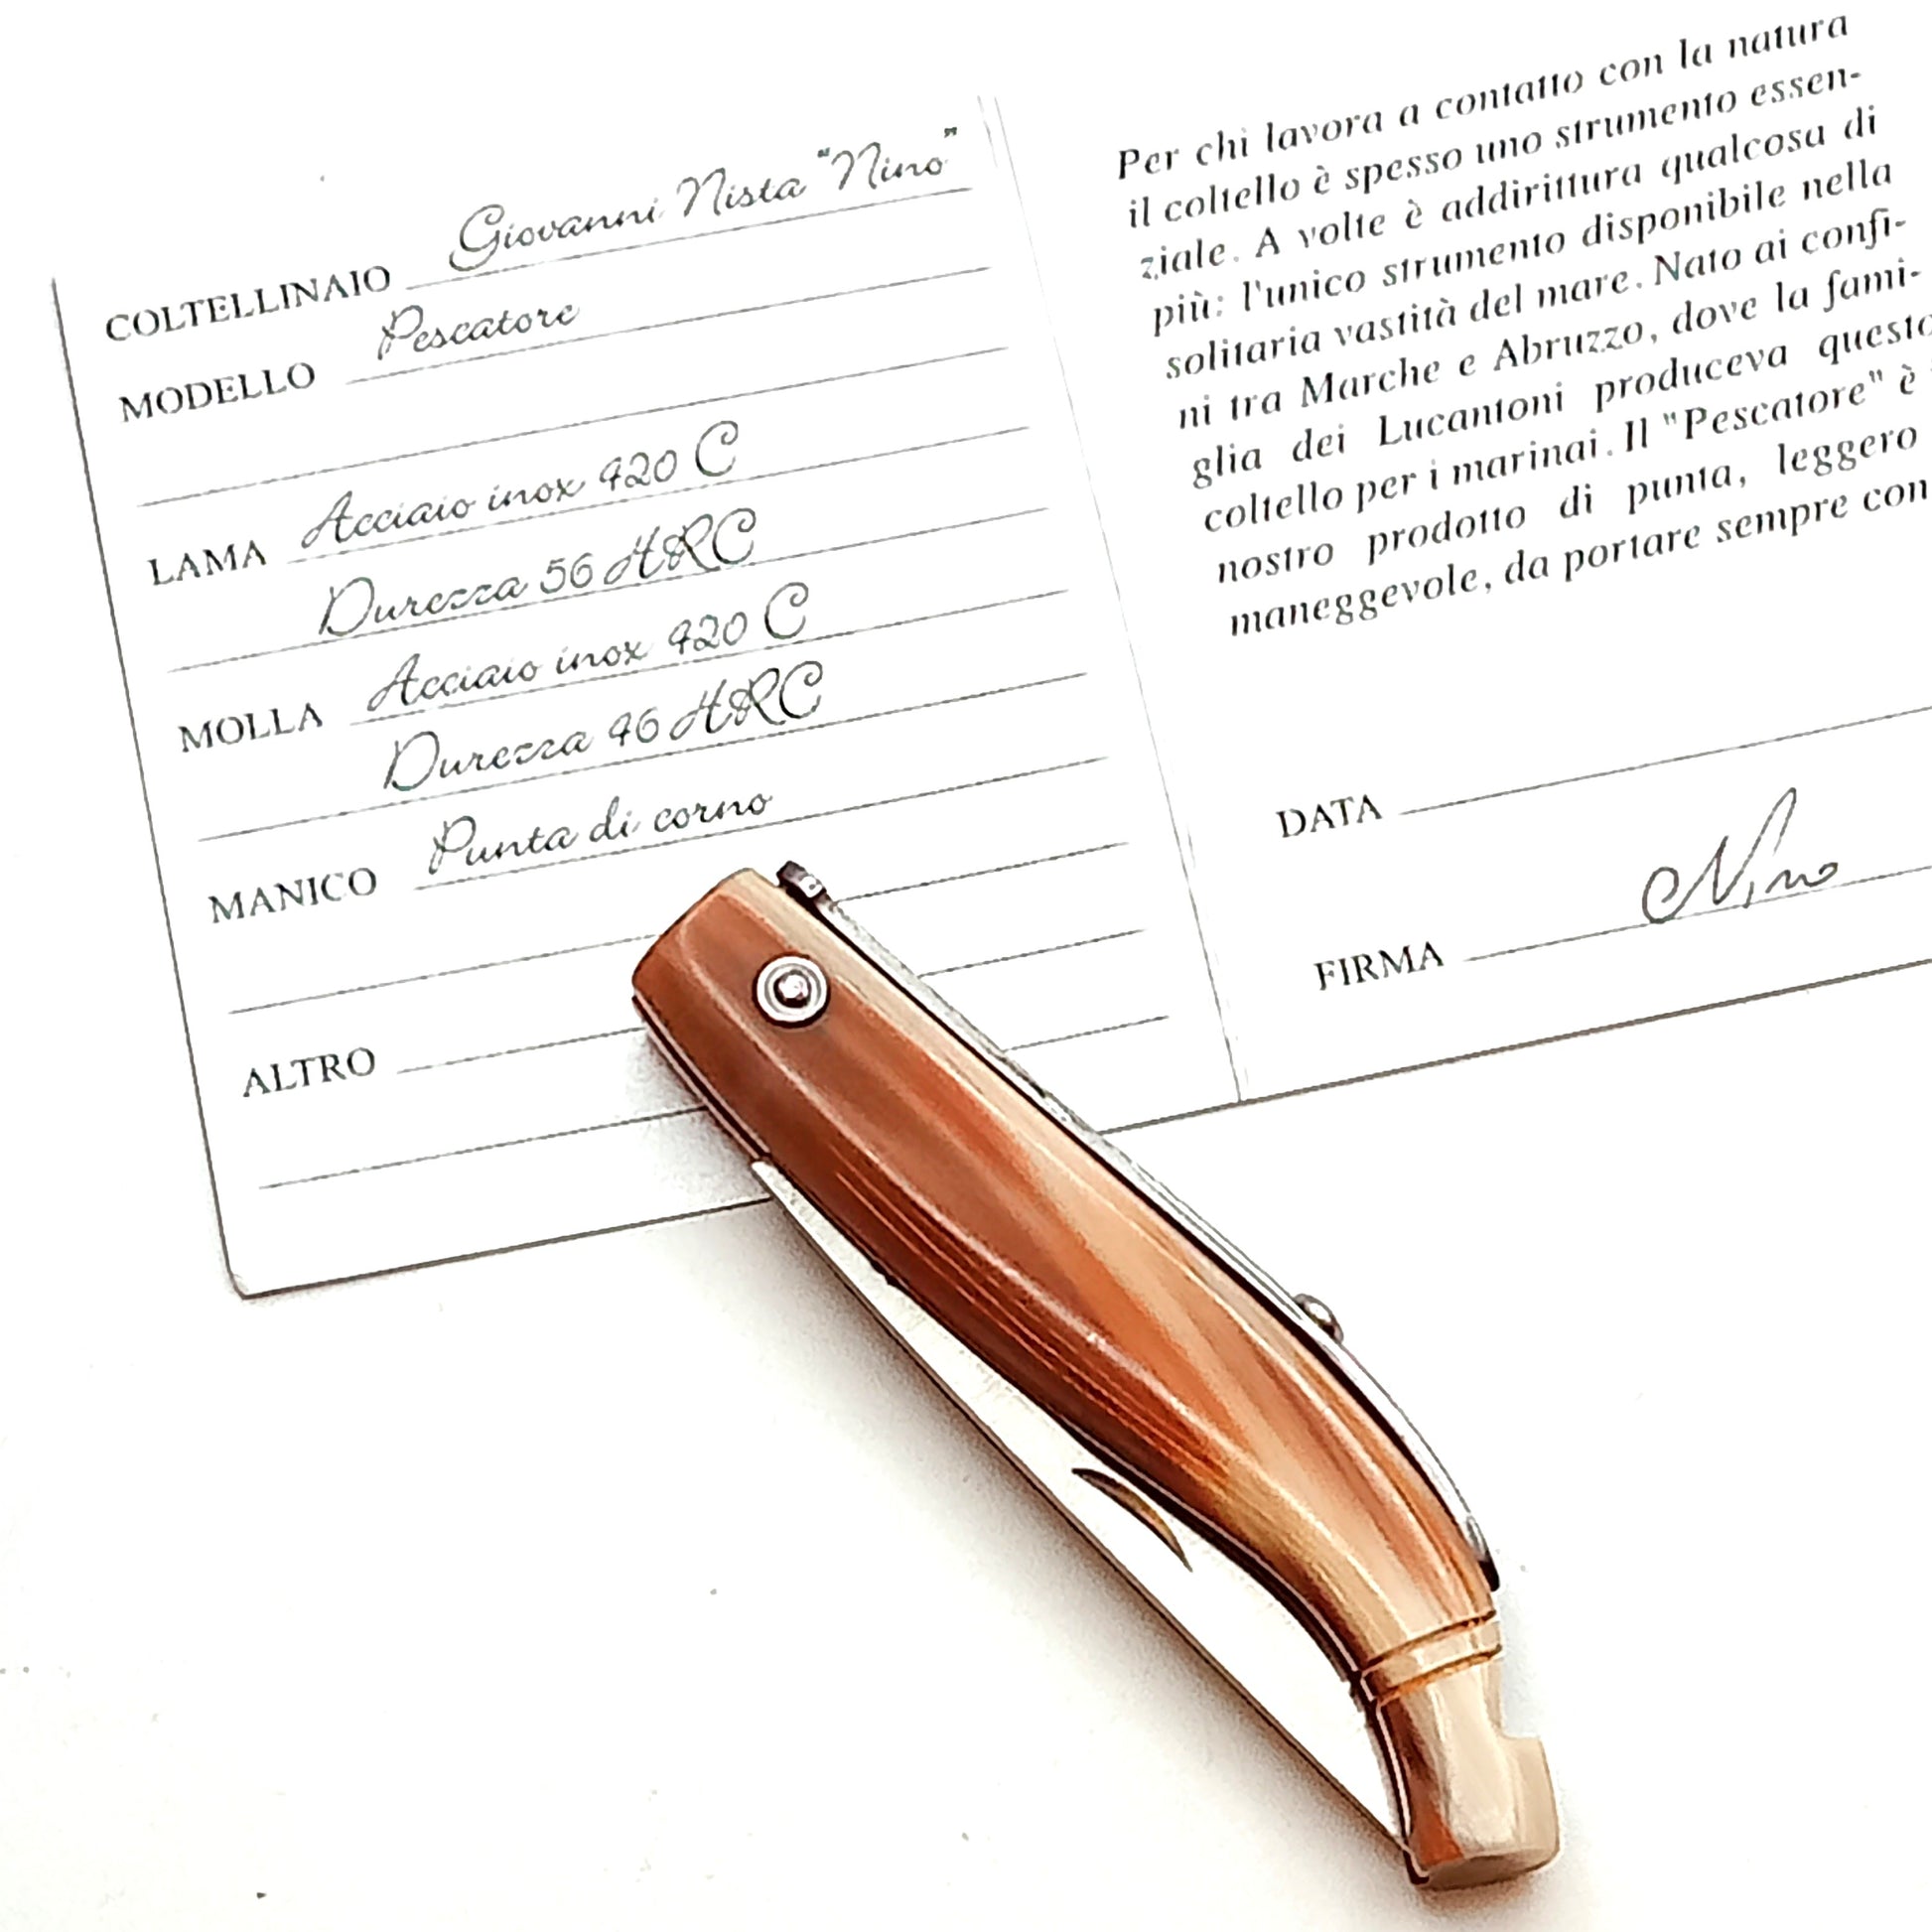 COLTELLINAIO Giovanni Nista "Nino"
MODELLO Pescatore
LAMA Acciaio inox 420 C
Durezza 56 HRC
MOLLA Acciaio inox 420 C
Durezza 46 HRC
MANICO Punta di corno
ALTRO
Per chi lavora a contatto con la natura
il coltello è spesso uno strumento essen-
ziale. A volte è addirittura qualcosa di
più: l'unico strumento disponibile nella
solitaria vastità del mare. Nato ai confi-
ni tra Marche e Abruzzo, dove la fami-
glia dei Lucantoni produceva questo
coltello per i marinai. Il "Pescatore" è
nostro prodotto di punta, leggero
maneggevole, da portare sempre con
DATA
FIRMA Nino